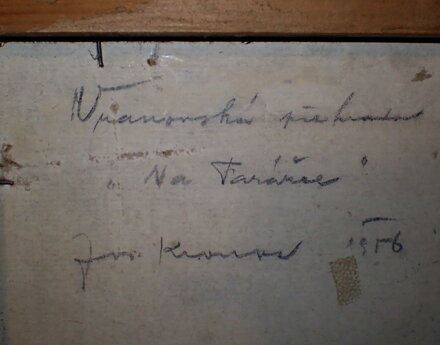 Vranovská přehrada
„Na Farářce"
Jos. 1956